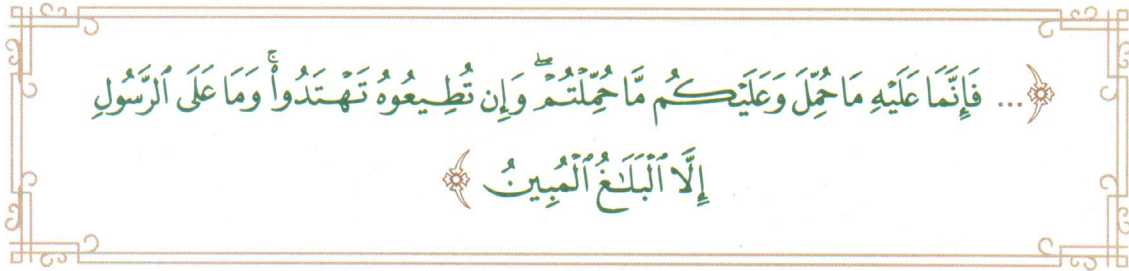 ﴿... فَإِنَّمَا عَلَيْهِ مَا حُمِّلَ وَعَلَيْكُم مَّا حُمِّلْتُمْ ۖ وَإِن تُطِيعُوهُ تَهْتَدُوا۟ ۚ وَمَا عَلَى ٱلرَّسُولِ
إِلَّا ٱلْبَلَـٰغُ ٱلْمُبِينُ ﴾